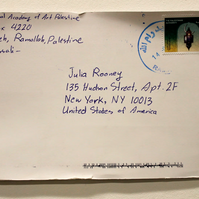 al Academy of Art Palestine
ox 4220
eh, Ramallah, Palestine
Jula Rooney
135 Hudson Street, Apt. 2F
New York, NY 10013
United States of America